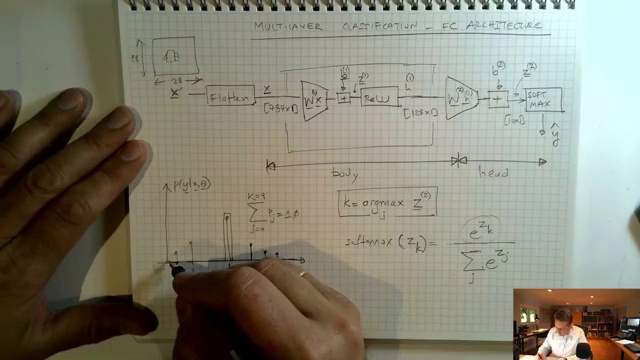 MULTILAYER CLASSIFICATION - FC ARCHITECTURE
28
28
x'
Flatten
x
[784x1]
W⁽¹⁾x
b⁽¹⁾
+
z⁽¹⁾
ReLU
h⁽¹⁾
[128x1]
W⁽²⁾h⁽¹⁾
b⁽²⁾
+
z⁽²⁾
[10x1]
SOFT
MAX
ŷ
body
head
p(y|x,θ)
K=9
∑ Pj = 1.0
j=0
k = argmax z⁽²⁾
j
softmax (zk) =
e^zk
∑ e^zj
j